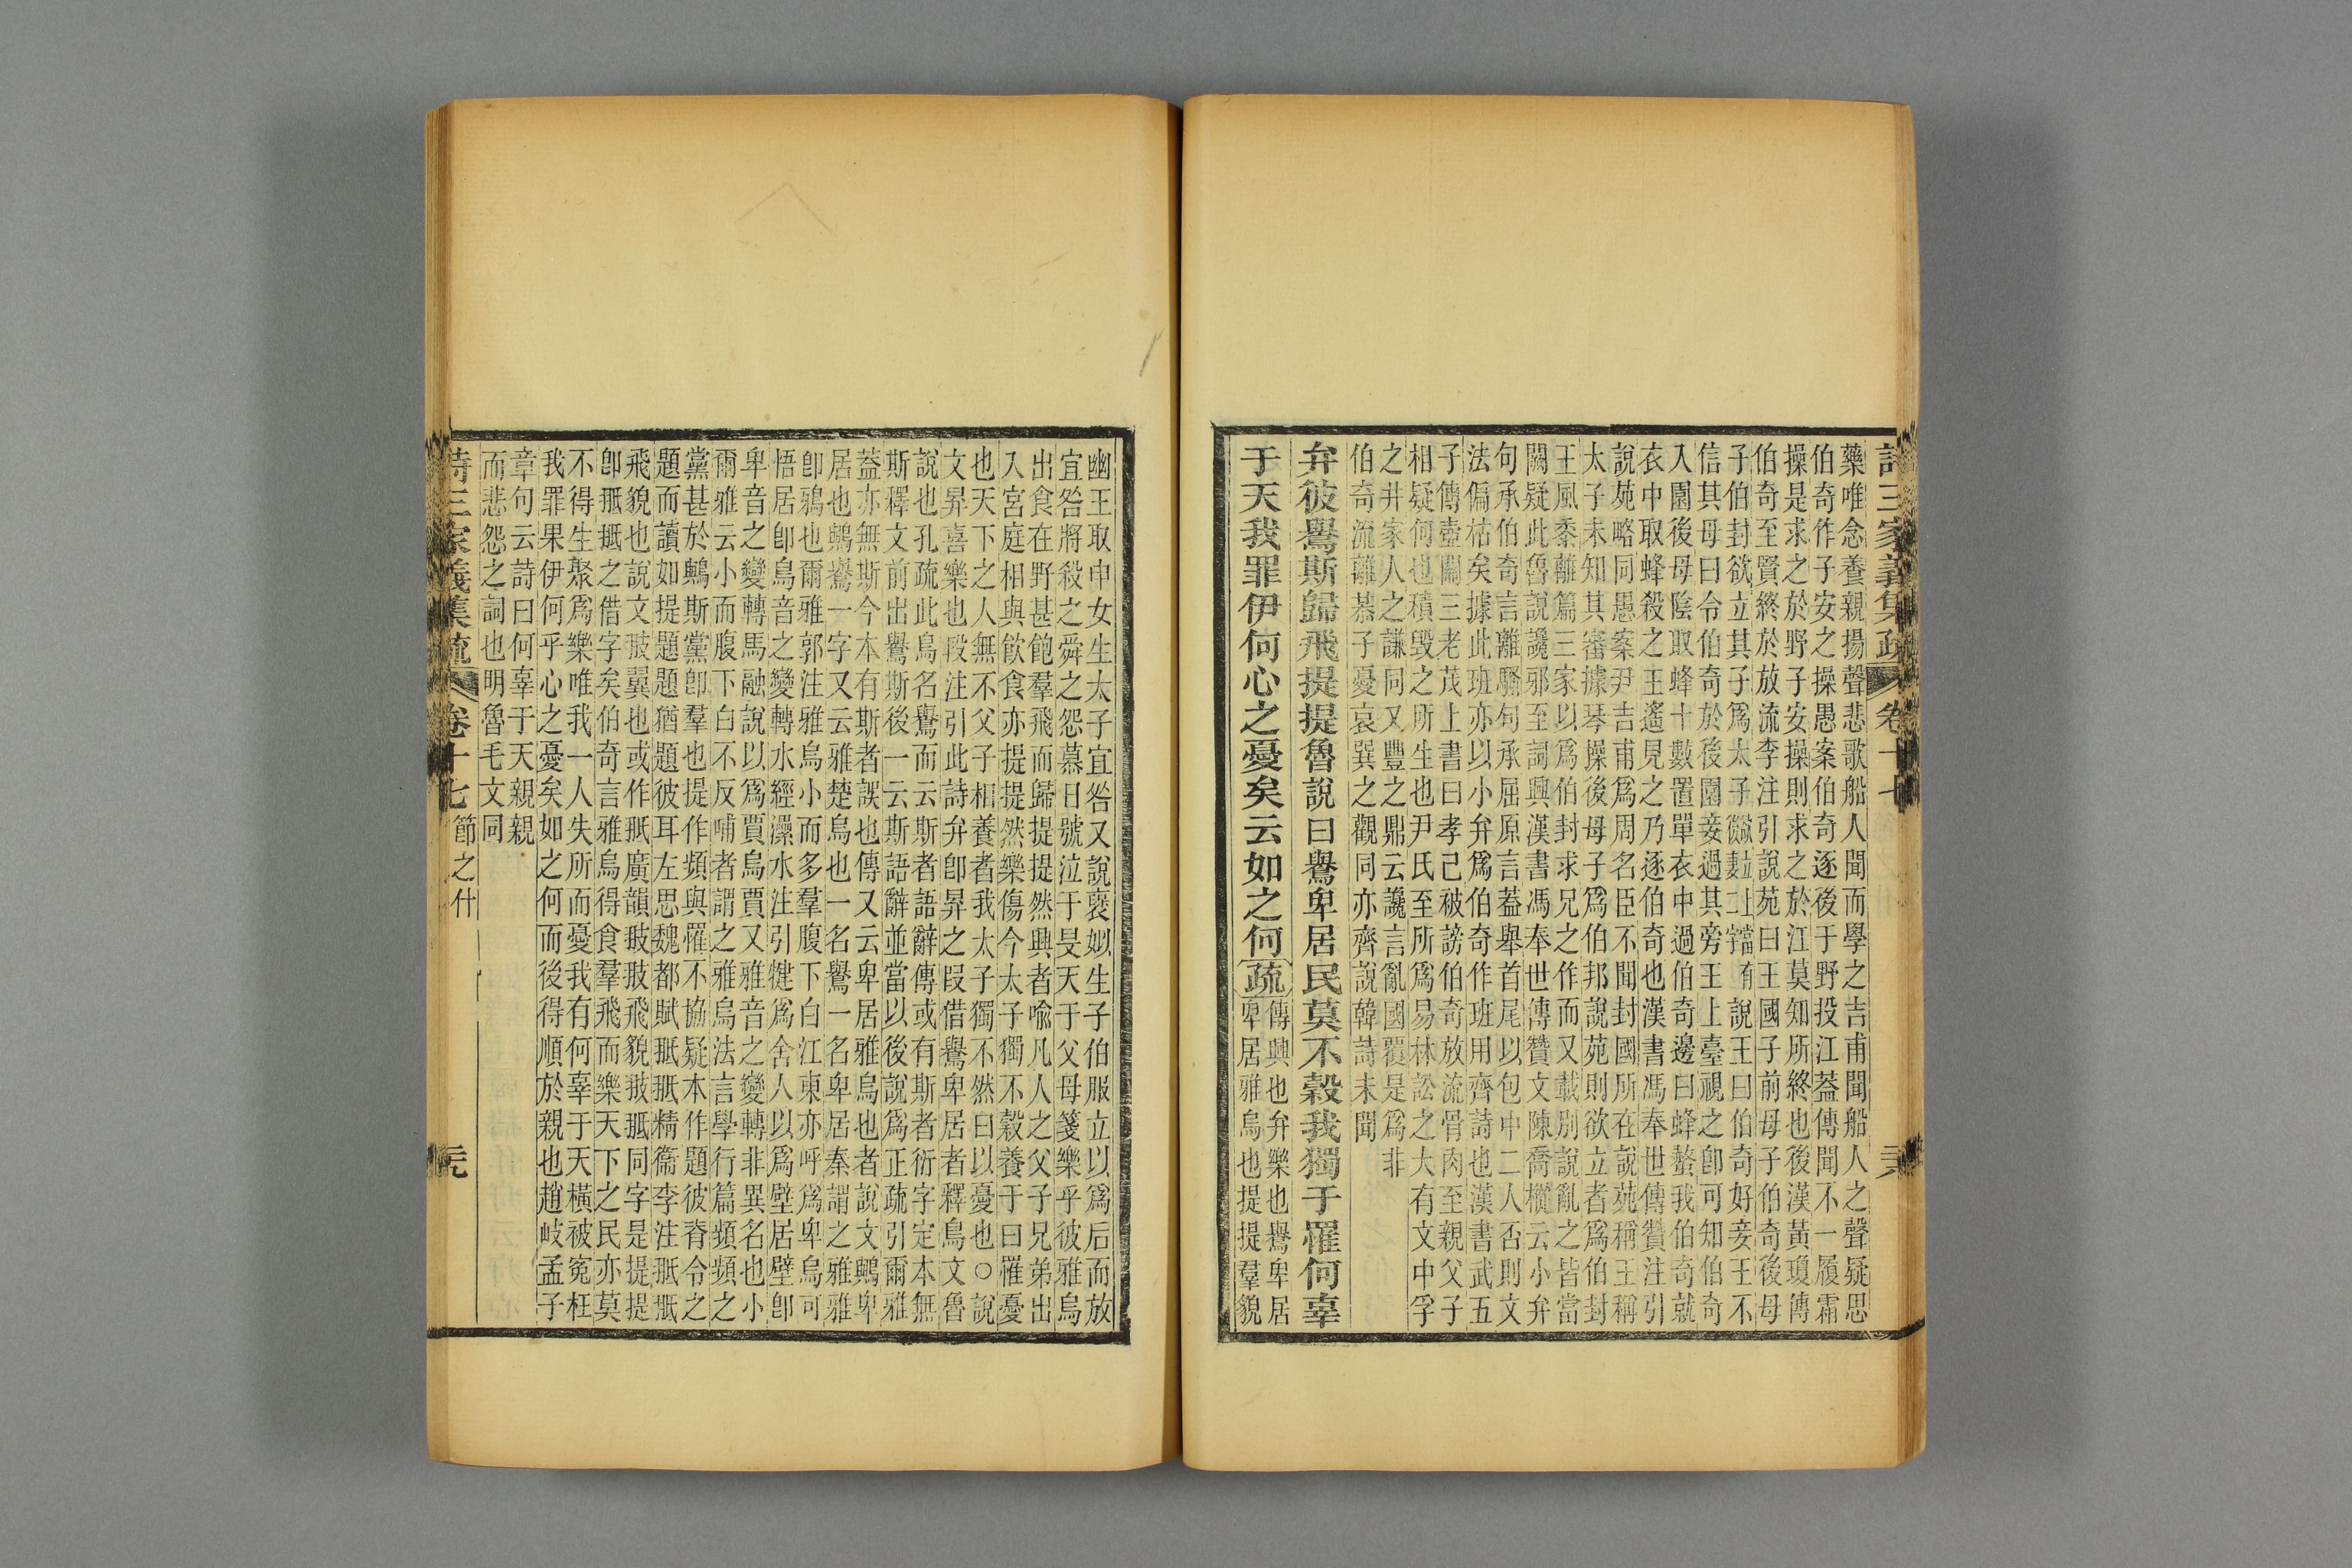 詩三家義集疏 卷十七
藥唯念養親揚聲悲歌船人聞而學之吉甫聞船人之聲疑思
伯奇作子安之操愚案伯奇逐後于野投江蓋傳聞不一履霜
操是求之於野子安操則求之於江莫知所終也後漢黃瓊傳
伯奇至賢終於放流李注引說苑曰王國子前母子伯奇後母
子伯封欲立其子爲太子說王曰伯奇好妾王不
信其母曰令伯奇於後園妾過其旁王上臺視之卽可知伯奇
入園後母陰取蜂十數置單衣中過伯奇邊曰蜂螫我伯奇就
衣中取蜂殺之王遙見之乃逐伯奇也漢書馮奉世傳贊注引
說苑略同愚案尹吉甫爲周名臣不聞封國所在說苑稱王稱
太子未知其審據琴操後母子爲伯邦說苑則欲立者爲伯封
王風黍離篇三家以爲伯封求兄之作而又載別說亂之皆當
闕疑此魯說讒邪至詞興漢書馮奉世傳贊文陳喬樅云小弁
句承伯奇言離騷句承屈原言蓋舉首尾以包中二人否則文
法偏祜矣據此班亦以小弁爲伯奇作班用齊詩也漢書武五
子傳壺關三老茂上書曰孝己被謗伯奇放流骨肉至親父子
相疑何也積毀之所生也尹氏至所爲易林訟之大有文中孚
之井家人之謙同又豐之鼎云讒言亂國覆是爲非
伯奇流離恭子憂哀巽之觀同亦齊說韓詩未聞
弁彼鸒斯歸飛提提魯說曰鸒卑居民莫不穀我獨于罹何辜
于天我罪伊何心之憂矣云如之何疏
傳興也弁樂也鸒卑居
卑居雅烏也提提羣貌
幽王取申女生太子宜咎又說褒姒生子伯服立以爲后而放
宜咎將殺之舜之怨慕日號泣于旻天于父母箋樂乎彼雅烏
出食在野甚飽羣飛而歸提提然興者喻凡人之父子兄弟出
入宮庭相與飲食亦提提然樂傷今太子獨不穀養于曰罹憂
也天下之人無不父子相養者我太子獨不然曰以憂也○說
文昪喜樂也段注引此詩弁卽昪之叚借鸒卑居者釋鳥文魯
說也孔疏此鳥名鸒而云斯者語辭傳或有斯者衍字定本無
斯釋文前出鸒斯後一云斯語辭並當以後說爲正疏引爾雅
蓋亦無斯今本有斯者誤也傳又云卑居雅烏也者說文鵯卑
居也鵯鸒一字又云雅楚烏也一名鸒一名卑居秦謂之雅雅
卽鴉也爾雅郭注雅烏小而多羣腹下白江東亦呼爲卑烏可
悟居卽鳥音之變轉水經㶟水注引犍爲舍人以爲壁居壁卽
卑音之變轉馬融說以爲賈烏賈又雅音之變轉非異名也小
爾雅云小而腹下白不反哺者謂之雅烏法言學行篇頻頻之
黨甚於鵯斯黨卽羣也提作頻與罹不協疑本作題彼脊令之
題而讀如提題題猶題彼耳左思魏都賦䟗䟗精衞李注䟗䟗
飛貌也說文翄翼也或作䟗廣韻翄翄飛貌翄䟗同字是提提
卽䟗䟗之借字矣伯奇言雅烏得食羣飛而樂天下之民亦莫
不得生聚爲樂唯我一人失所而憂我有何辜于天橫被冤枉
我罪果伊何乎心之憂矣如之何而後得順於親也趙岐孟子
章句云詩曰何辜于天親親
而悲怨之詞也明魯毛文同
詩三家義集疏 卷十七 節之什